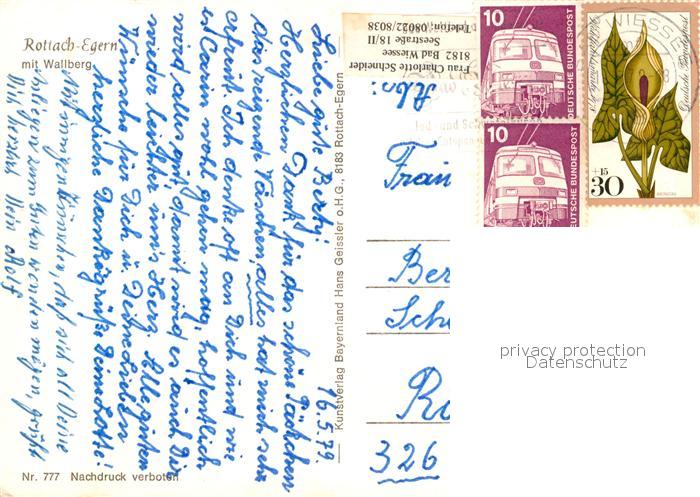 Rottach-Egern
mit Wallberg
16.5.79.
Liebe gute Berty!
Herzlichen Dank für das schöne Päckchen
das reizende Täschen, alles hat mich sehr
erfreut. Ich denke oft an Dich und wie
es Dir wohl gehen mag, hoffentlich
wird alles gut damit wird es auch Dir
wieder leichter ums Herz. Alle guten
Wünsche für Dich u. Deine Lieben
herzliche Dankesgrüße Deine Lotte!
Mit innigen Wünschen, daß sich all Deine
Anliegen zum Guten wenden mögen, grüßt
Dich herzlich Dein Rolf
Nr. 777 Nachdruck verboten
Kunstverlag Bayernland Hans Geissler o.H.G., 8183 Rottach-Egern
Frau Charlotte Schneider
8182 Bad Wiessee
Seestraße 18/II
Telefon: 08022/8038
Abs:
10
DEUTSCHE BUNDESPOST
10
DEUTSCHE BUNDESPOST
WIESSEE
Deutsche Bundespost
+15
30
Frau
Ber
Sch
326
privacy protection
Datenschutz